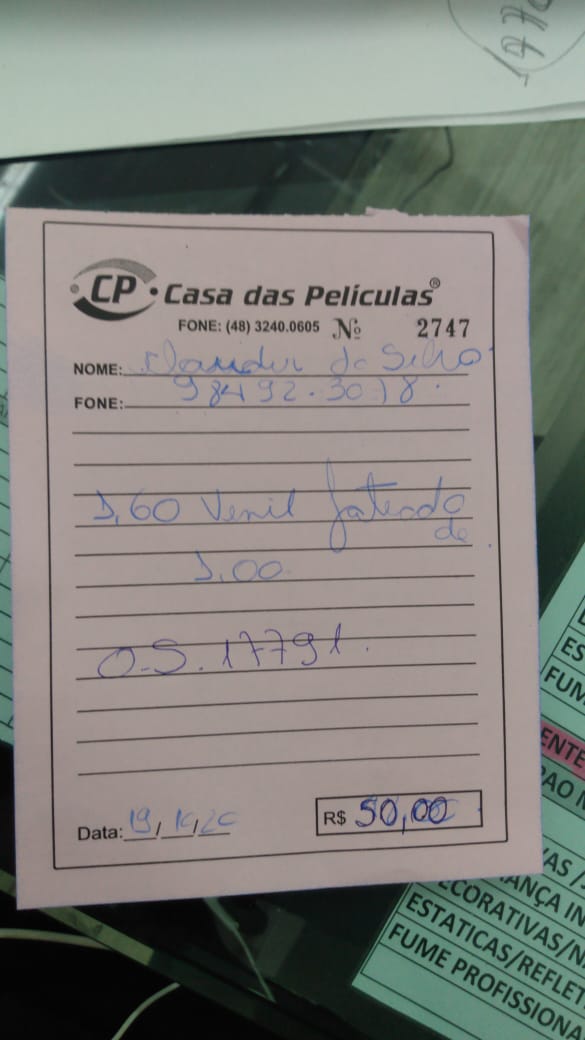 CP Casa das Películas®
FONE: (48) 3240.0605 Nº 2747
NOME: da Silva
FONE: 98492.3018.
1,60 Venil Jateado
de
1,00
O.S. 17791.
Data: 19/10/20 R$ 50,00
ES
FUM
ENTE
PAO
VAS /
ANÇA IN
ECORATIVAS/N
ESTATICAS/REFLET
FUME PROFISSIONA